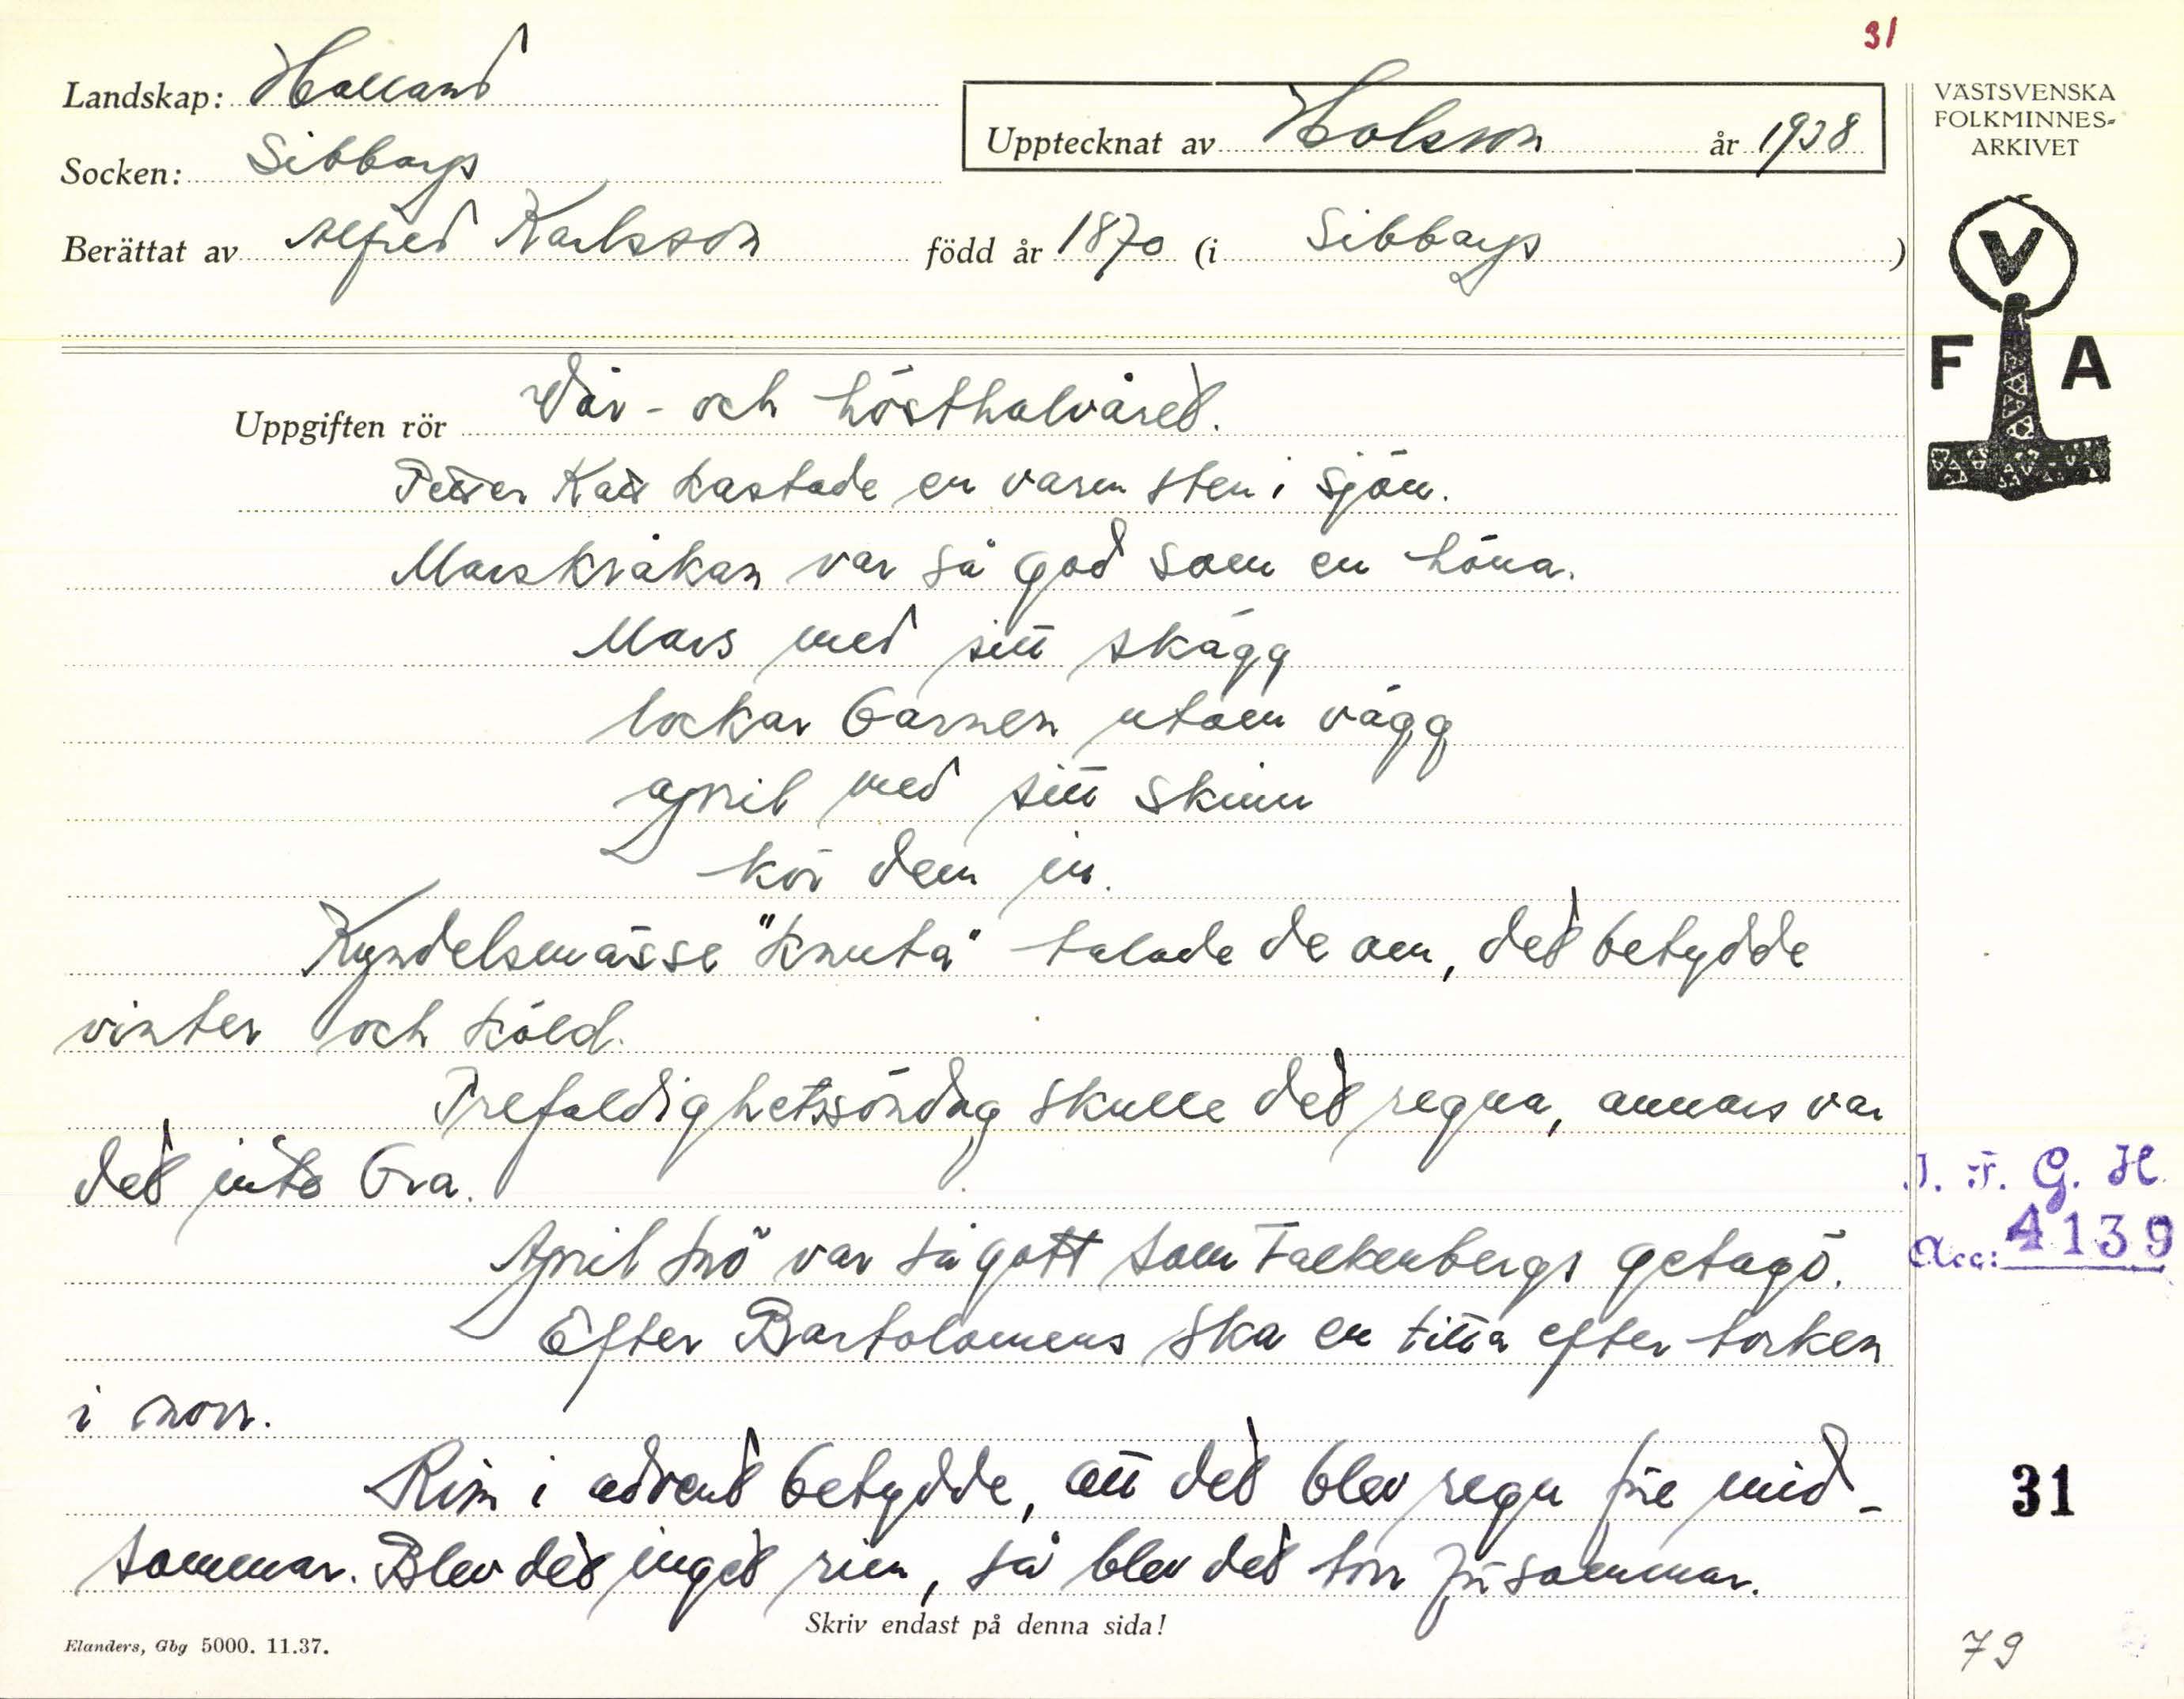 31
Landskap: Halland
Socken: Sibbarp
Upptecknat av Holsson år 1938
Berättat av Alfred Karlsson född år 1870 (i Sibbarp)
VÄSTSVENSKA
FOLKMINNES-
ARKIVET
V
F A
Uppgiften rör Vår- och hösthalvåret.
Petter Katt kastade en varm sten i sjön.
Marskråkan var så god som en höna.
Mars med sitt skägg
lockar barnen utom vägg
april med sitt skinn
kör dem in.
Kyndelsmässe "knuta" talade de om, det betydde
vinter och köld.
Trefaldighetssöndag skulle det regna, annars var
det inte bra.
April snö var så gott som Falkenbergs getagö.
Efter Bartolomeus ska en titta efter torken
i norr.
Rim i advent betydde, att det blev regn före mid-
sommar. Blev det inget rim, så blev det torr försommar.
Skriv endast på denna sida!
Elanders, Gbg 5000. 11.37.
I. F. G. H.
Acc: 4139
31
79